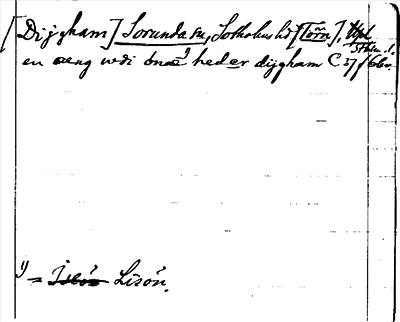 [Dijgham] Sorunda sn, Sotholms hd [Törn], Upl
Sthlm. l.
en æng widi bnæ¹⁾ heder dijgham C 37 f 66v.
¹⁾ = Lisön.